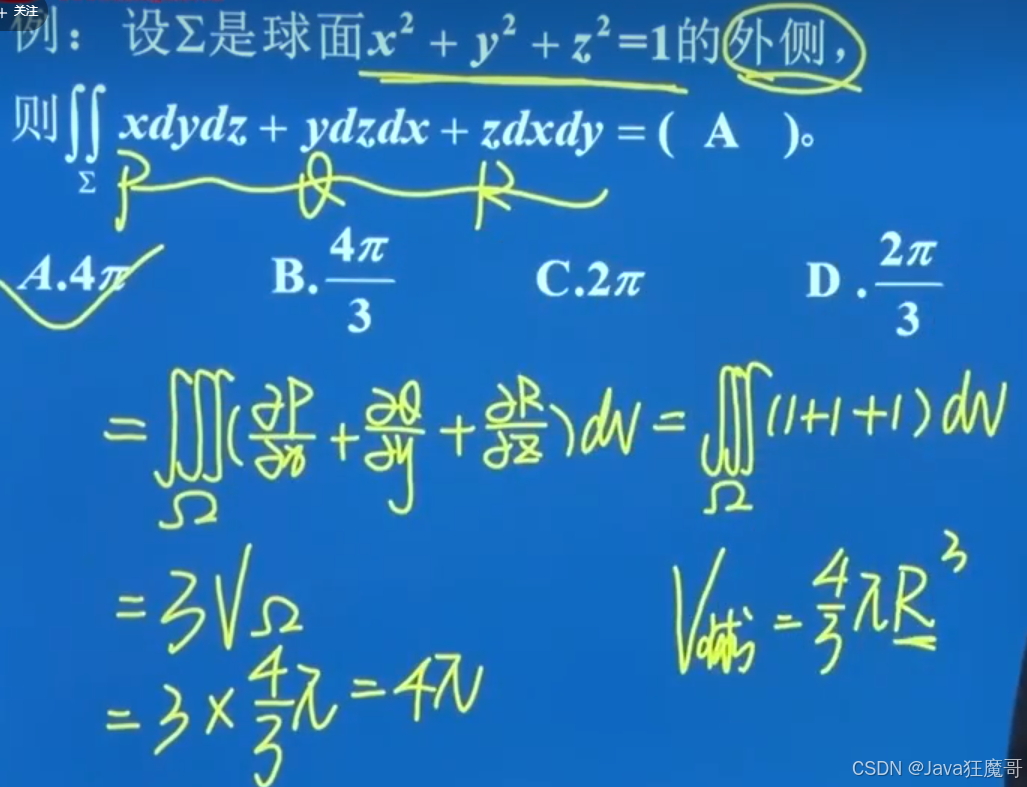 + 关注
例：设Σ是球面x² + y² + z²=1的外侧，
则∬_Σ xdydz + ydzdx + zdxdy = ( A )。
P Q R
A.4π B.4π/3 C.2π D.2π/3
=∭_Ω(∂P/∂x + ∂Q/∂y + ∂R/∂z)dV = ∭_Ω(1+1+1)dV
= 3V_Ω
V球 = 4/3 πR³
= 3 × 4/3 π = 4π
CSDN @Java狂魔哥